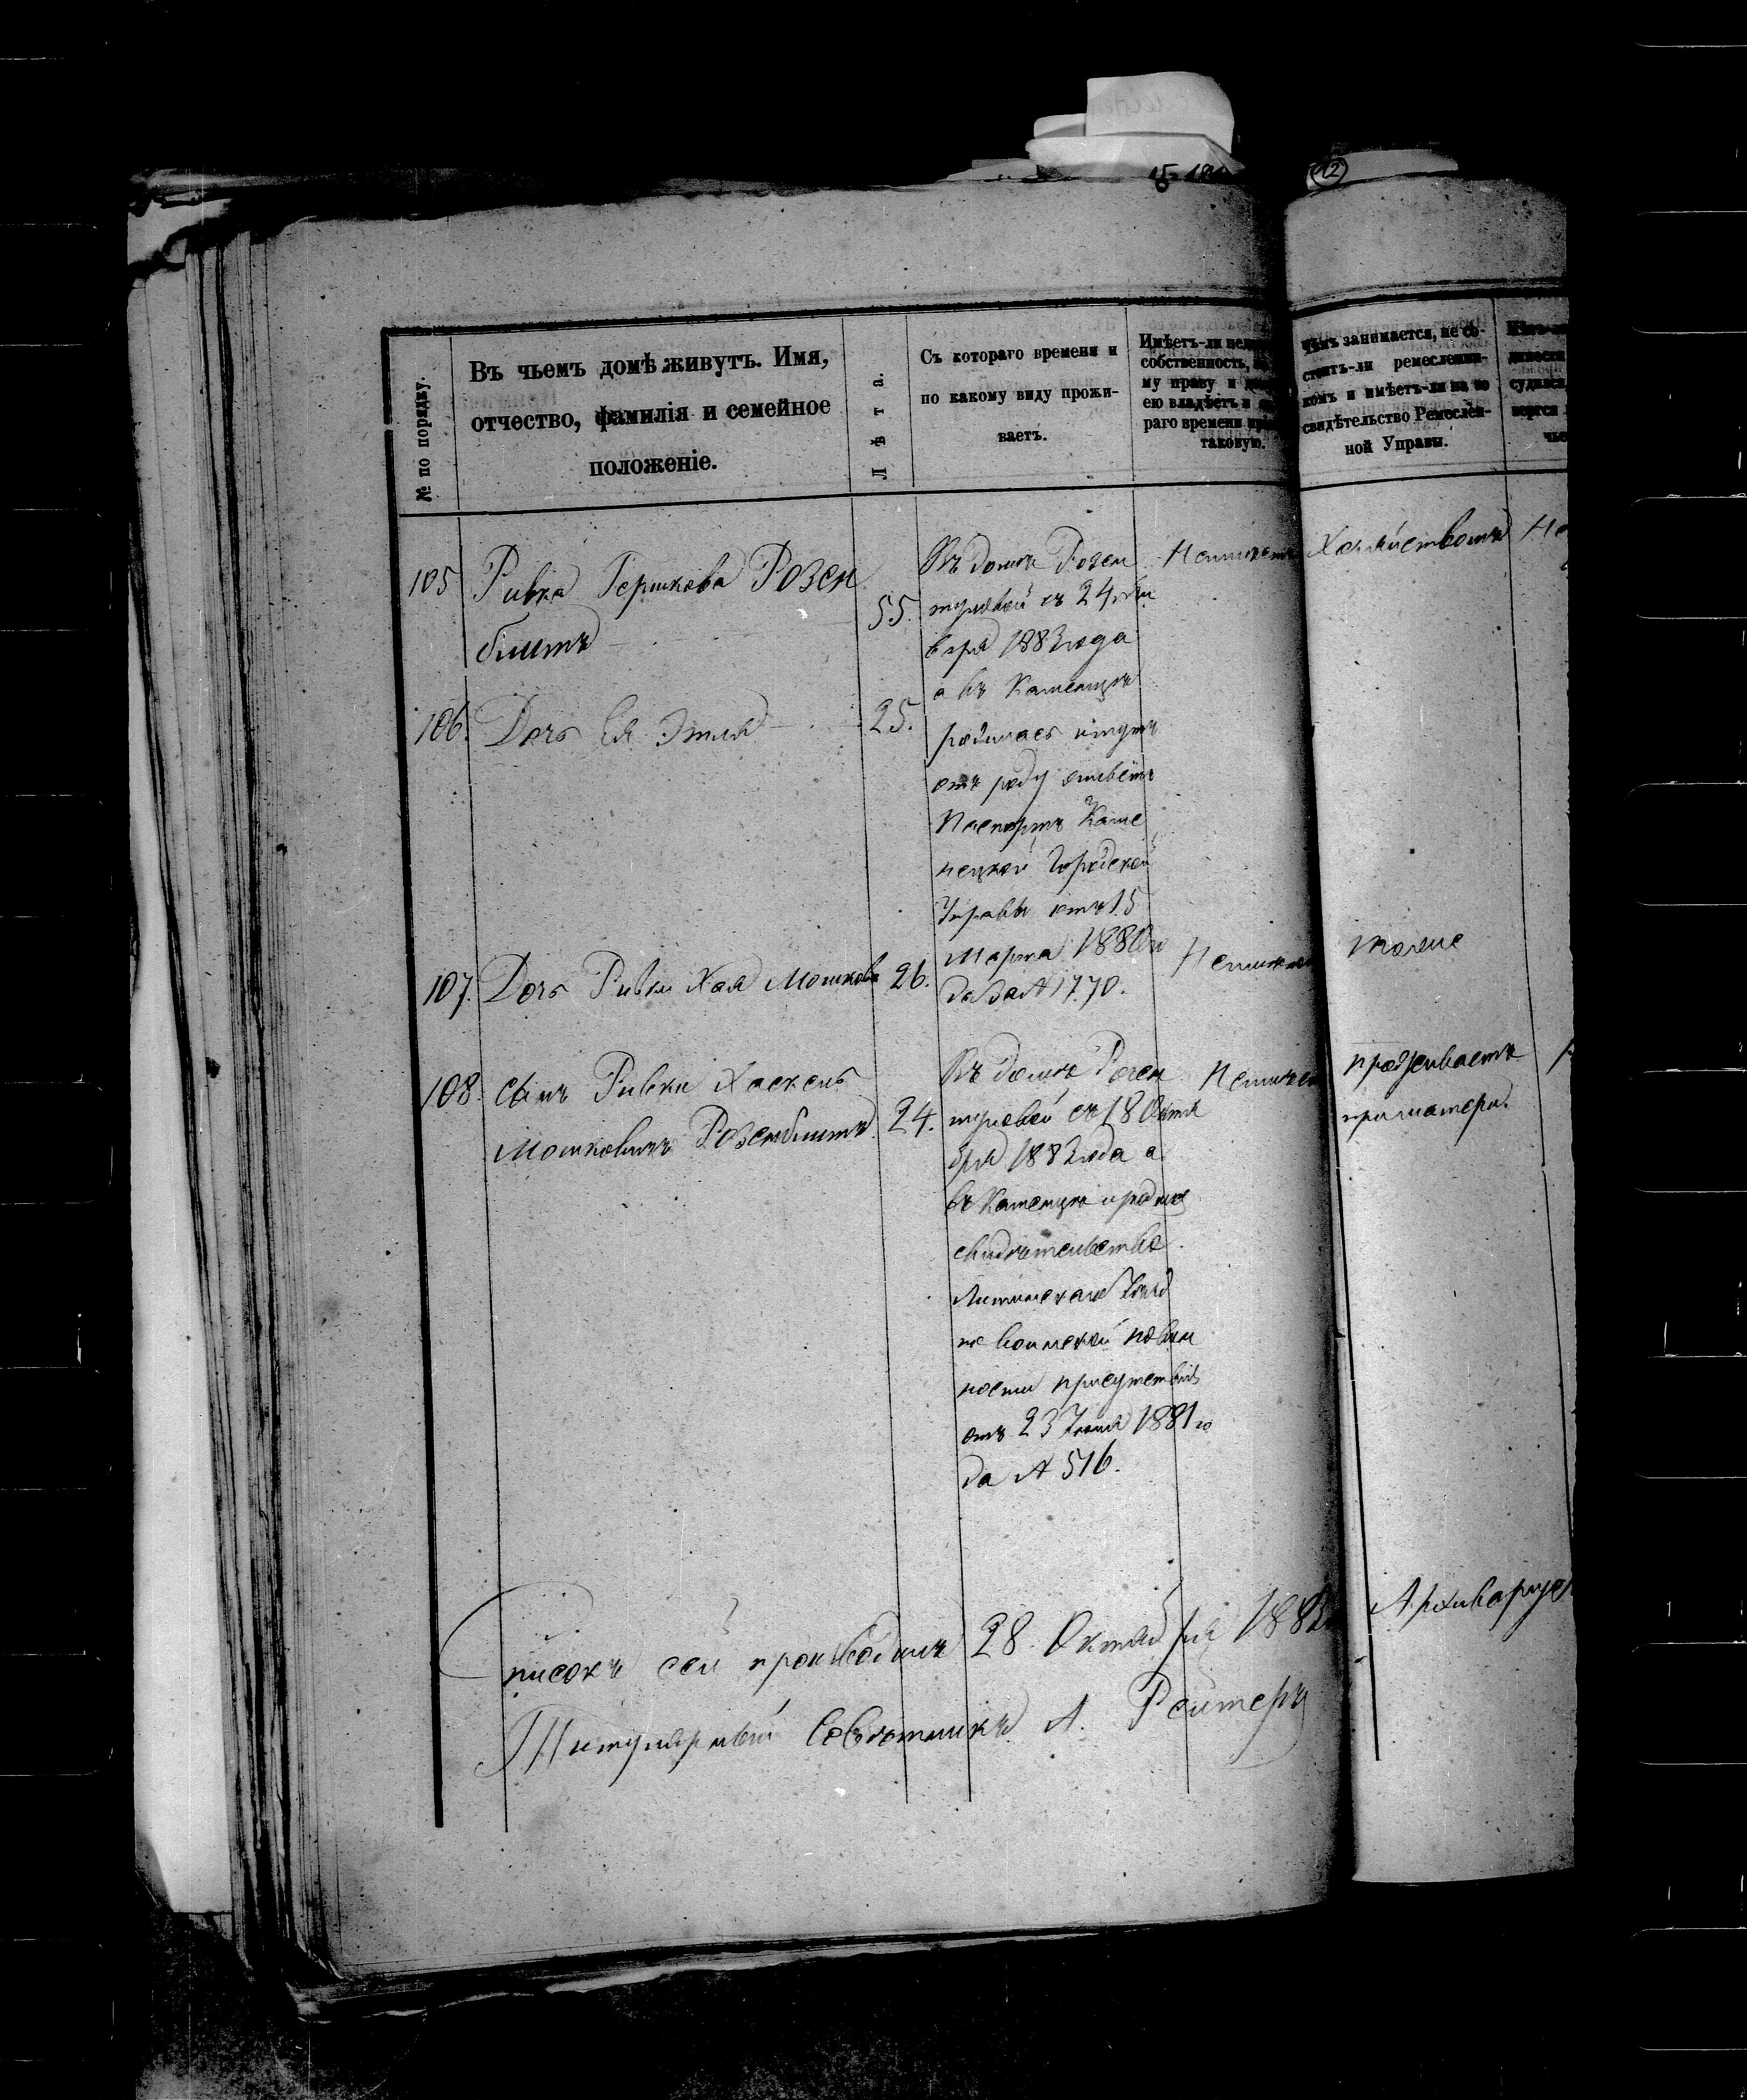 12
№ по порядку.
Въ чьемъ домѣ живутъ. Имя,
отчество, фамилія и семейное
положеніе.
Лѣта.
Съ котораго времени и
по какому виду прожи-
ваетъ.
Имѣетъ-ли
собственность,
му праву и
ею владѣетъ и
раго времени
таковую.
чѣмъ занимается, не со-
стоитъ-ли ремесленни-
комъ и имѣетъ-ли на то
свидѣтельство Ремеслен-
ной Управы.
105
Ривка Гершкова Розен
блитъ
55.
Въ домѣ Розен
съ 24
бря 1883 года
а въ Каменцѣ
родилась
отъ роду
Паспортъ Каме
нецкой Городской
Управы отъ 15
Марта 1880 го
да за № 1770.
Неимѣетъ
Хозяйствомъ
106.
Дочь Ея Этля
25.
107.
Дочь Ривки Хая Мошкова
26.
Неимѣетъ
тоже
108.
сынъ Ривки Хаскель
Мошковичъ Розенблитъ
24.
Въ домѣ Розен
съ 18 Октя
бря 1883 года а
въ Каменцѣ
свидѣтельство
Литинскаго Уѣзд
по воинской повин
ности присутствія
отъ 23 1881 го
да № 516.
Неимѣетъ
проживаетъ
при матери.
Списокъ сей производилъ 28 Октября 1883
Титулярный Совѣтникъ А. Рейтеръ
Архиваріус